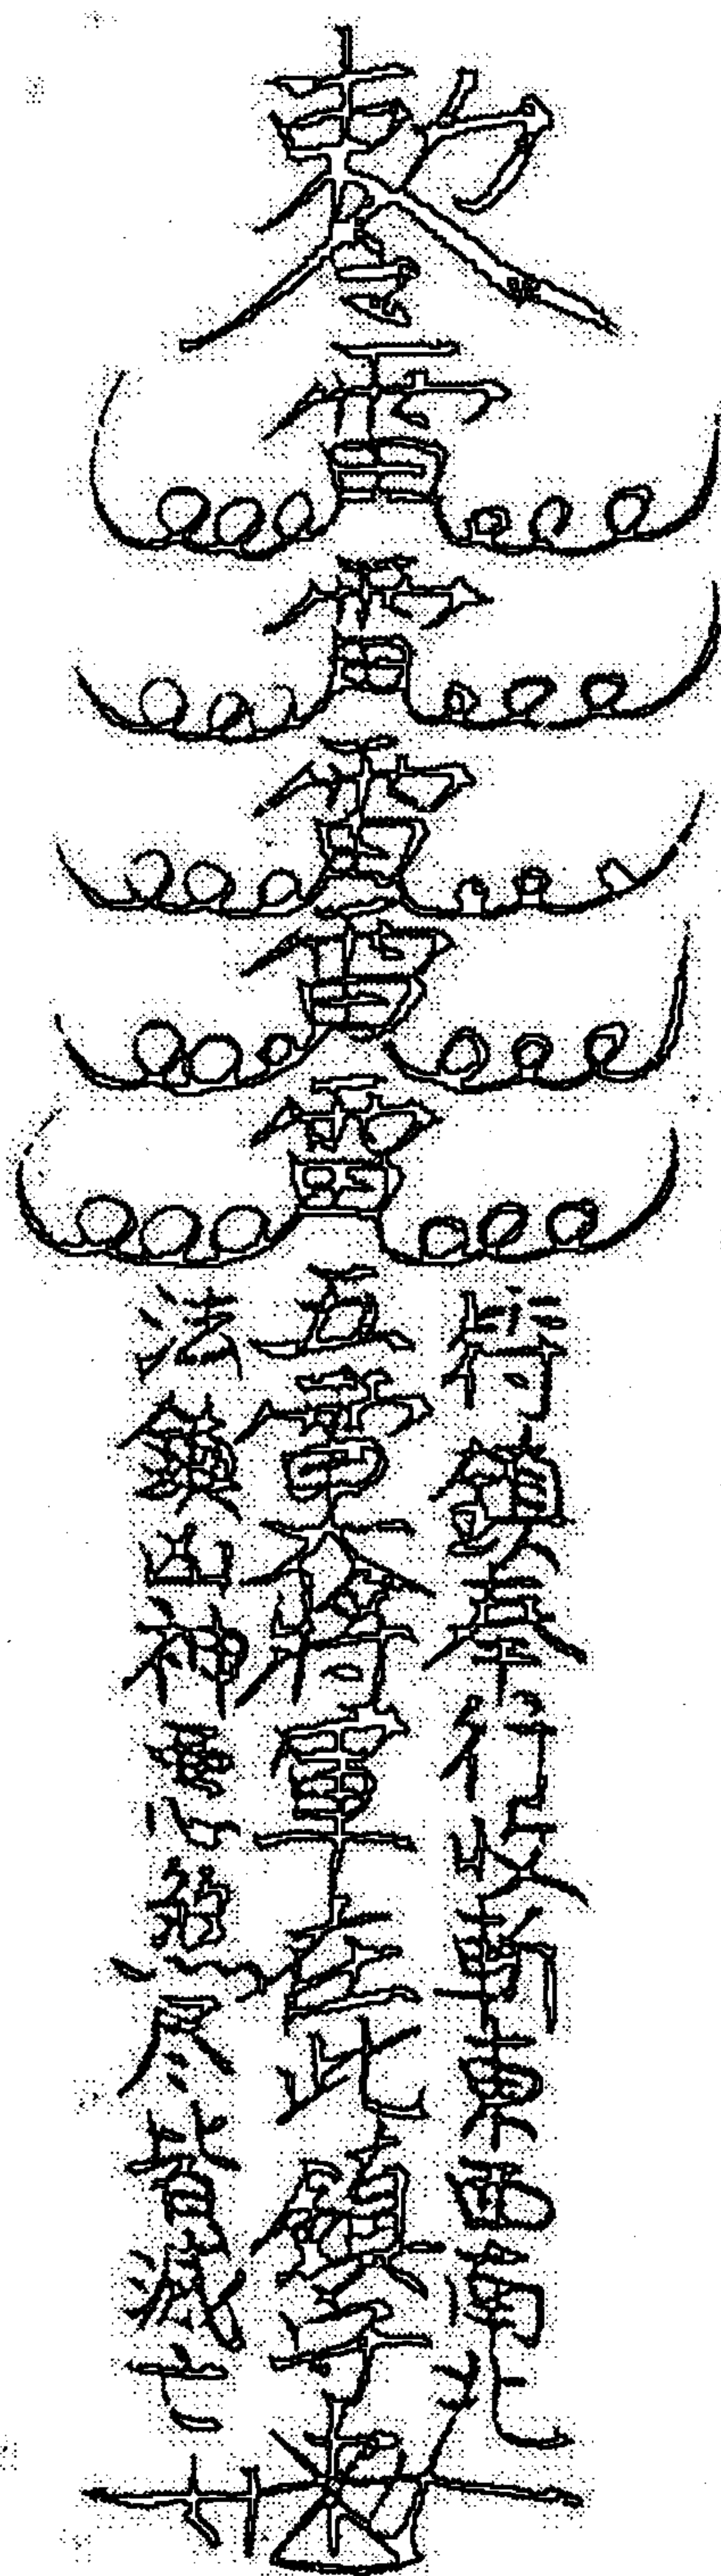 敕令
雷雷雷雷雷
符鎮奉行收斬東西南北
五雷大將軍在此鎮守
法鎮凶神惡煞尽皆滅亡